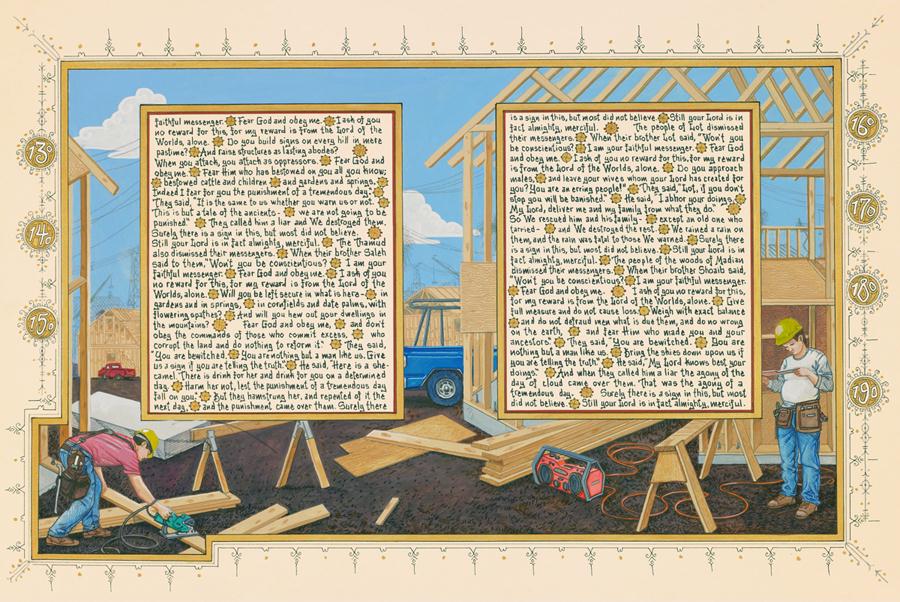 130
140
150
faithful messenger. Fear God and obey me. I ask of you
no reward for this, for my reward is from the Lord of the
Worlds, alone. Do you build signs on every hill in mere
pastime? And raise structures as lasting abodes?
When you attack, you attack as oppressors. Fear God and
obey me. Fear Him who has bestowed on you all you know;
bestowed cattle and children and gardens and springs.
Indeed I fear for you the punishment of a tremendous day."
They said, "It is the same to us whether you warn us or not.
This is but a tale of the ancients - we are not going to be
punished." They called him a liar and We destroyed them.
Surely there is a sign in this, but most did not believe.
Still your Lord is in fact almighty, merciful. The Thamud
also dismissed their messengers. When their brother Saleh
said to them, "Won't you be conscientious? I am your
faithful messenger. Fear God and obey me. I ask of you
no reward for this, for my reward is from the Lord of the
Worlds, alone. Will you be left secure in what is here - in
gardens and in springs, in cornfields and date palms, with
flowering spathes? And will you hew out your dwellings in
the mountains? Fear God and obey me, and don't
obey the commands of those who commit excess, who
corrupt the land and do nothing to reform it." They said,
"You are bewitched. You are nothing but a man like us. Give
us a sign if you are telling the truth." He said, "Here is a she-
camel. There is drink for her and drink for you on a determined
day. Harm her not, lest the punishment of a tremendous day
fall on you." But they hamstrung her, and repented of it the
next day, and the punishment came over them. Surely there
is a sign in this, but most did not believe. Still your Lord is in
fact almighty, merciful. The people of Lot dismissed
their messengers. When their brother Lot said, "Won't you
be conscientious? I am your faithful messenger. Fear God
and obey me. I ask of you no reward for this, for my reward
is from the Lord of the Worlds, alone. Do you approach
males, and leave your wives whom your Lord has created for
you? You are an erring people!" They said, "Lot, if you don't
stop you will be banished." He said, "I abhor your doings.
My Lord, deliver me and my family from what they do."
So We rescued him and his family - except an old one who
tarried - and We destroyed the rest. We rained a rain on
them, and the rain was fatal to those We warned. Surely there
is a sign in this, but most did not believe. Still your Lord is in
fact almighty, merciful. The people of the woods of Madian
dismissed their messengers. When their brother Shoaib said,
"Won't you be conscientious? I am your faithful messenger.
Fear God and obey me. I ask of you no reward for this,
for my reward is from the Lord of the Worlds, alone. Give
full measure and do not cause loss. Weigh with exact balance
and do not defraud men what is due them, and do no wrong
on the earth, and fear Him who made you and your
ancestors." They said, "You are bewitched. You are
nothing but a man like us. Bring the skies down upon us if
you are telling the truth." He said, "My Lord knows best your
doings. And when they called him a liar the agony of the
day of cloud came over them. That was the agony of a
tremendous day. Surely there is a sign in this, but most
did not believe. Still your Lord is in fact almighty, merciful.
160
170
180
190